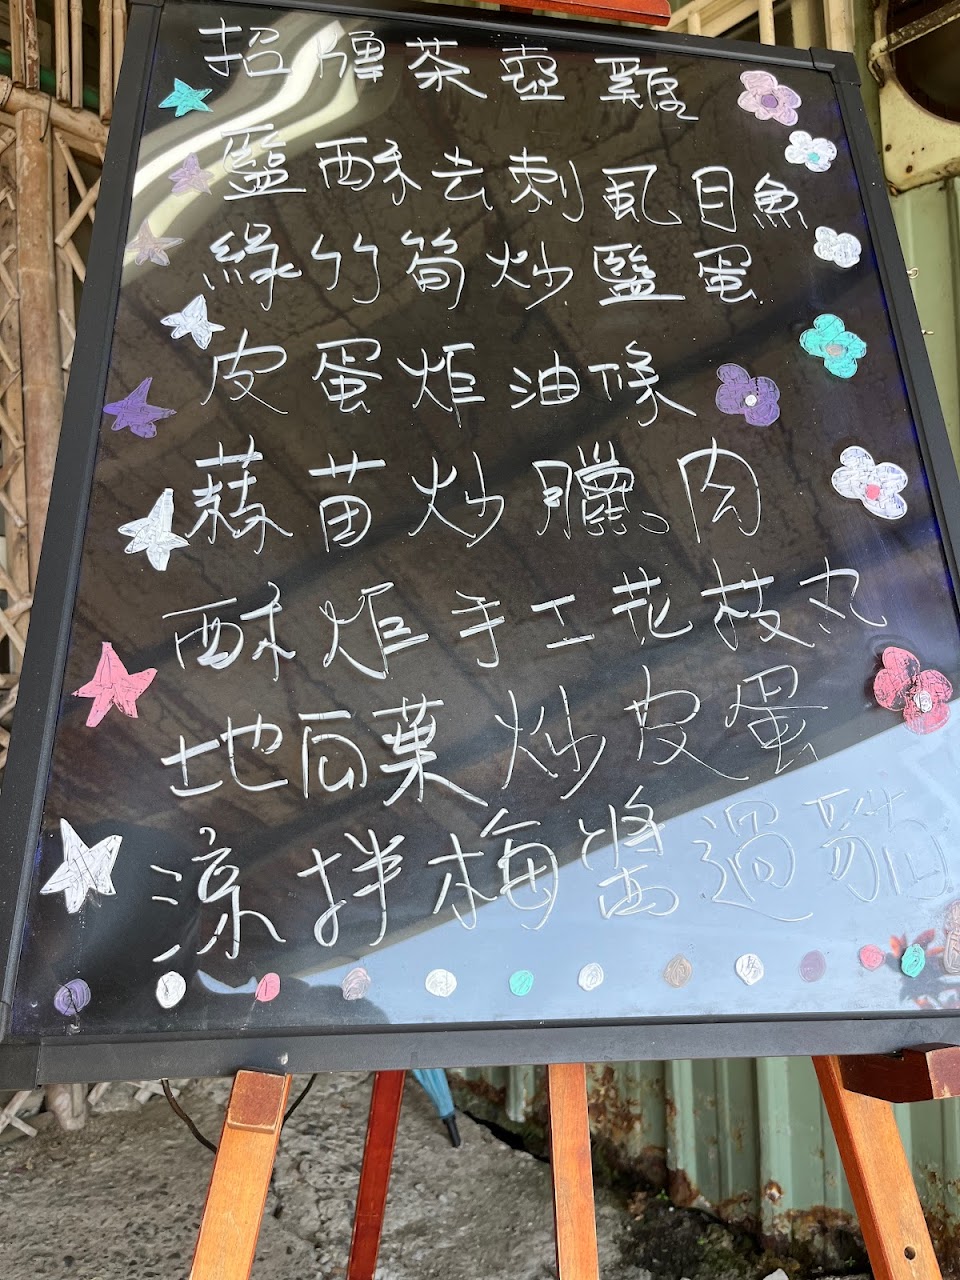 招牌茶壺雞
鹽酥去刺虱目魚
綠竹筍炒鹽蛋
皮蛋炸油條
蒜苗炒臘肉
酥炸手工花枝丸
地瓜葉炒皮蛋
涼拌梅醬過貓